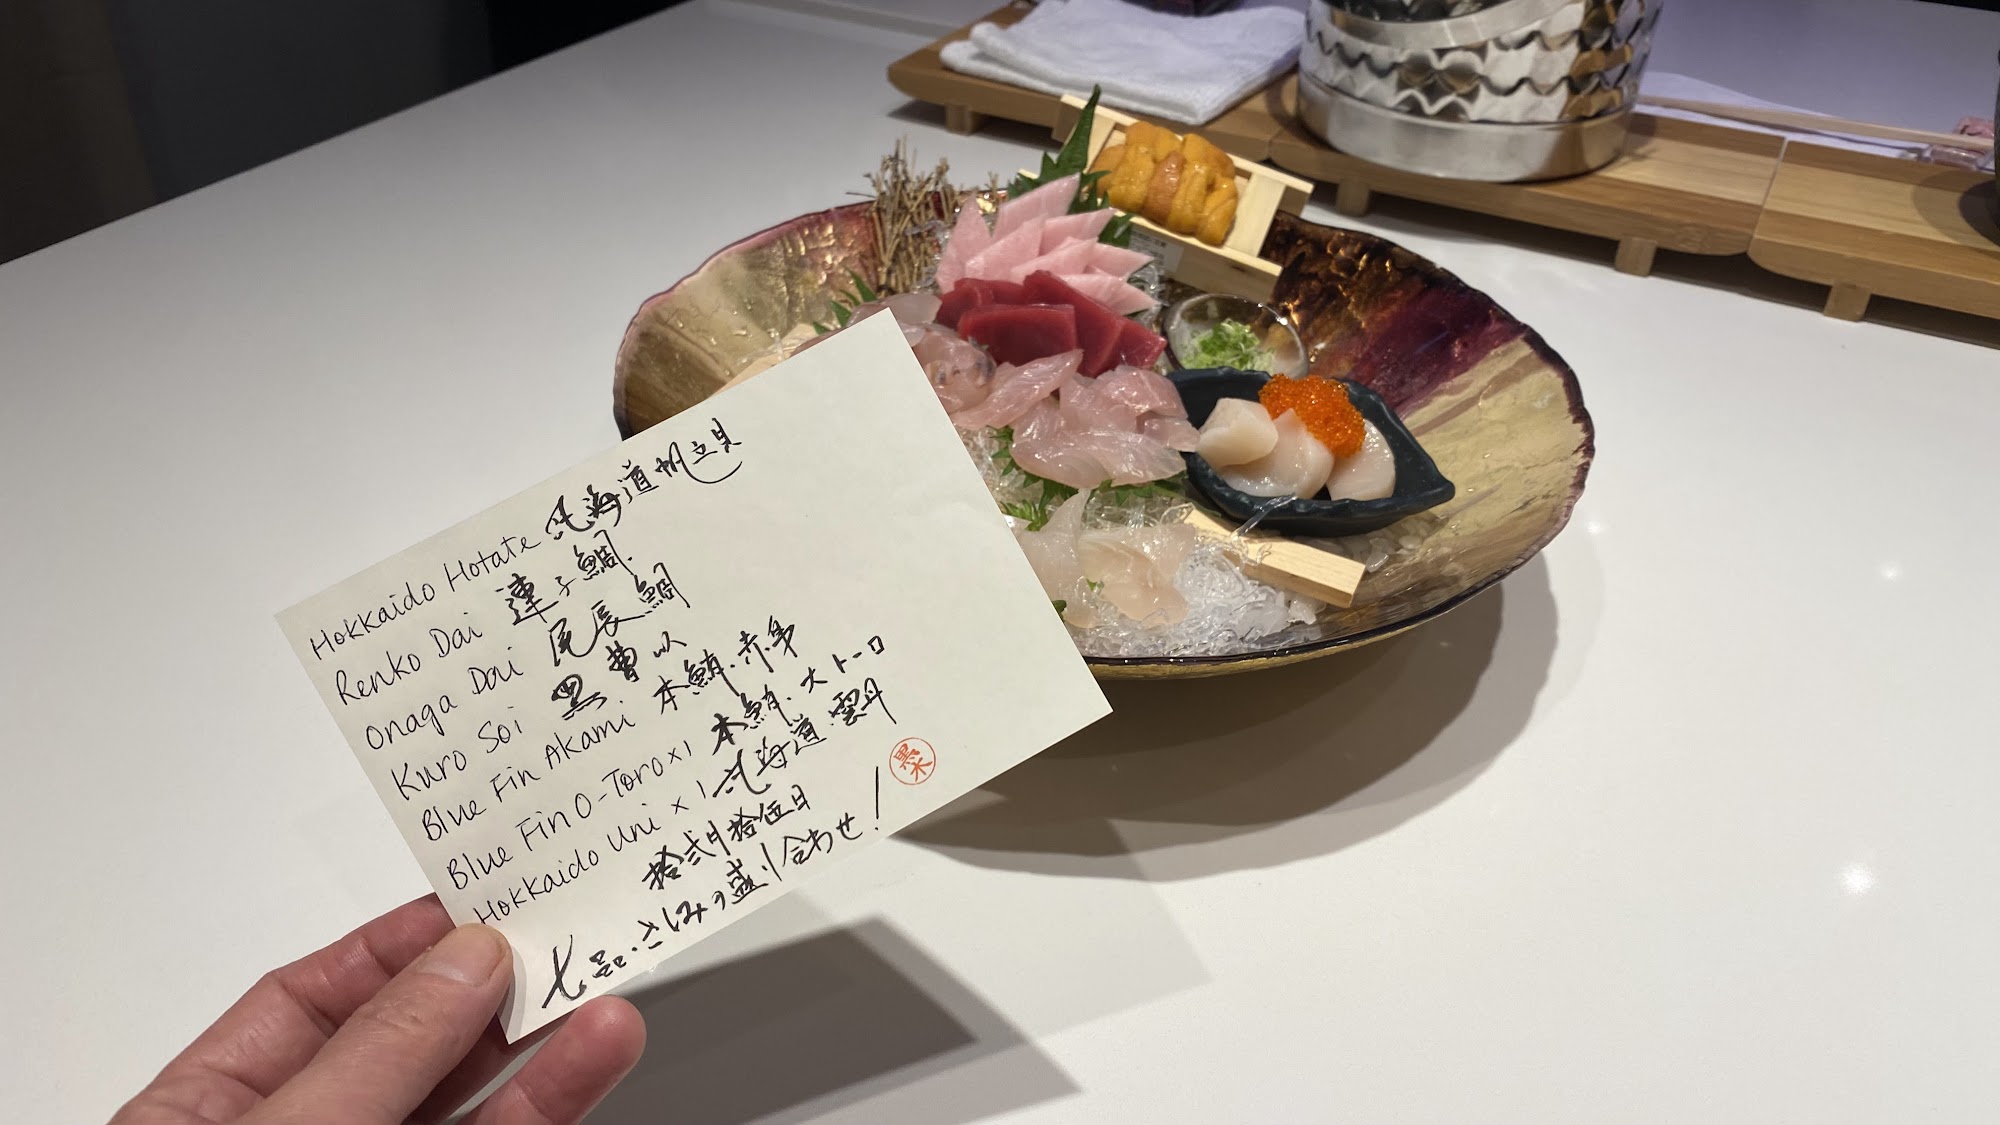 Hokkaido Hotate 北海道帆立貝
Renko Dai 連子鯛
Onaga Dai 尾長鯛
Kuro Soi 黒曹以
Blue Fin Akami 本鮪.赤身
Blue Fin O-Toro x1 本鮪.大トロ
Hokkaido Uni x1 北海道.雲丹
拾弐月拾伍日
七品.さしみの盛り合わせ!